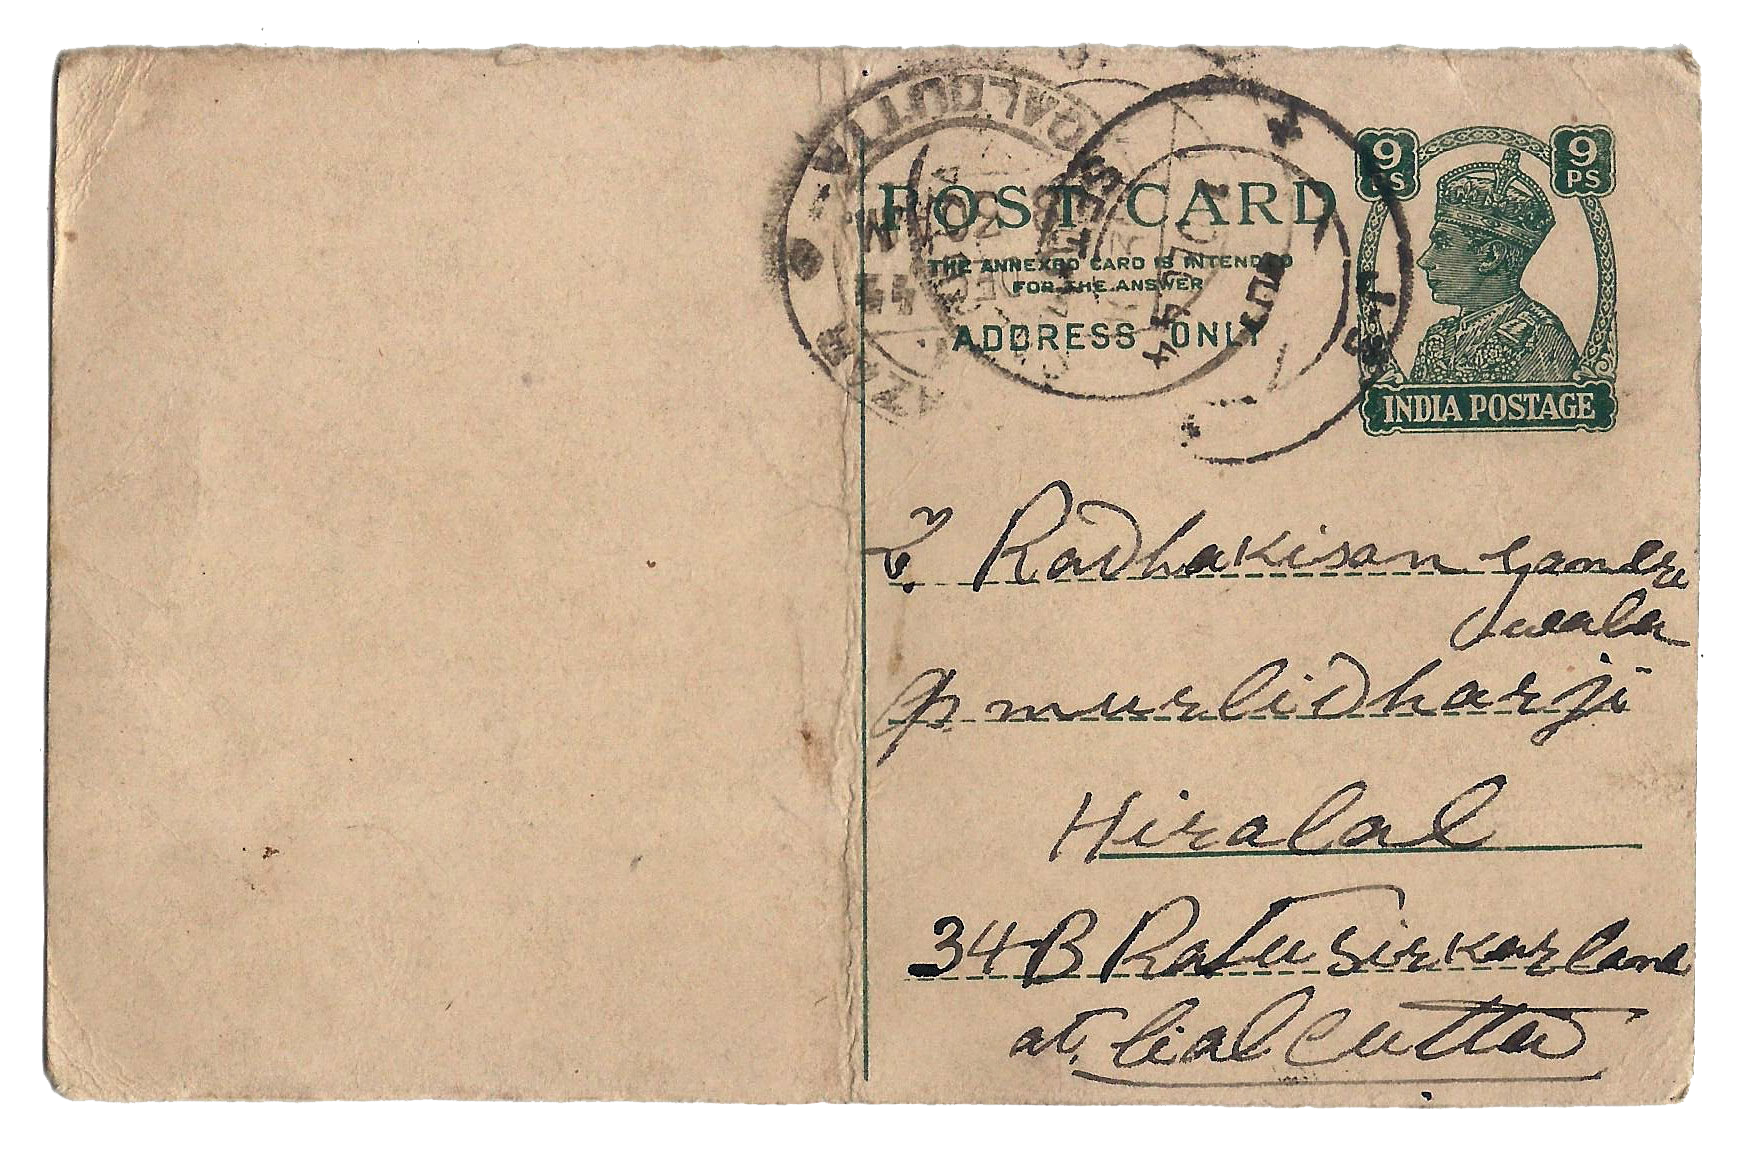 POST CARD
THE ANNEXED CARD IS INTENDED
FOR THE ANSWER
ADDRESS ONLY
9 9
PS PS
INDIA POSTAGE
CALCUTTA
Radhakisan
wala
murlidharji
Hiralal
34B Ratu Sirkar lane
at. Calcutta